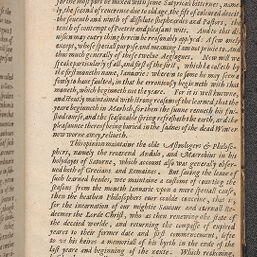 for the most part be mixed with some Satyricall bitternes, name-
ly, the second of reuerence due to old age, the fift of coloured deceit
the seuenth and ninth of dissolute shepheards and Pastors, the
tenth of contempt of Poetrie and pleasant wits. And to this di-
uision may euery thing herein be reasonably applyed: A few onely
except, whose speciall purpose and meaning I am not priuie to. And
thus much generally of these twelue Aeglogues. Now will we
speake particularly of all, and first of the first, which he calleth by
the first moneths name, Ianuarie: wherein to some he may seeme
fowly to haue faulted, in that he erroniously beginneth with that
moneth, which beginneth not the yeare. For it is well knowne,
and stoutly maintained with strong reasons of the learned, that the
yeare beginneth in March, for then the sunne reneweth his fini-
shed course, and the seasonable spring refresheth the earth, and the
pleasaunce thereof being buried in the sadnes of the dead Winter
now worne away, reliueth.
This opinion maintaine the olde Astrologers & Philoso-
phers, namely the reuerend Andalo, and Macrobius in his
holydayes of Saturne, which account also was generally obser-
ued both of Grecians and Romaines. But sauing the leaue of
such learned heades, wee maintaine a custome of counting the
seasons from the moneth Ianuarie vpon a more speciall cause,
then the heathen Philosophers euer coulde conceiue, that is,
for the incarnation of our mightie Sauiour and eternall Re-
deemer the Lorde Christ, who as then renewing the state of
the decaied worlde, and returning the compasse of expired
yeares to their former date and first commencement, lefte
to vs his heires a memoriall of his byrth in the ende of the
last yeare and beginning of the next. Which reckoning,